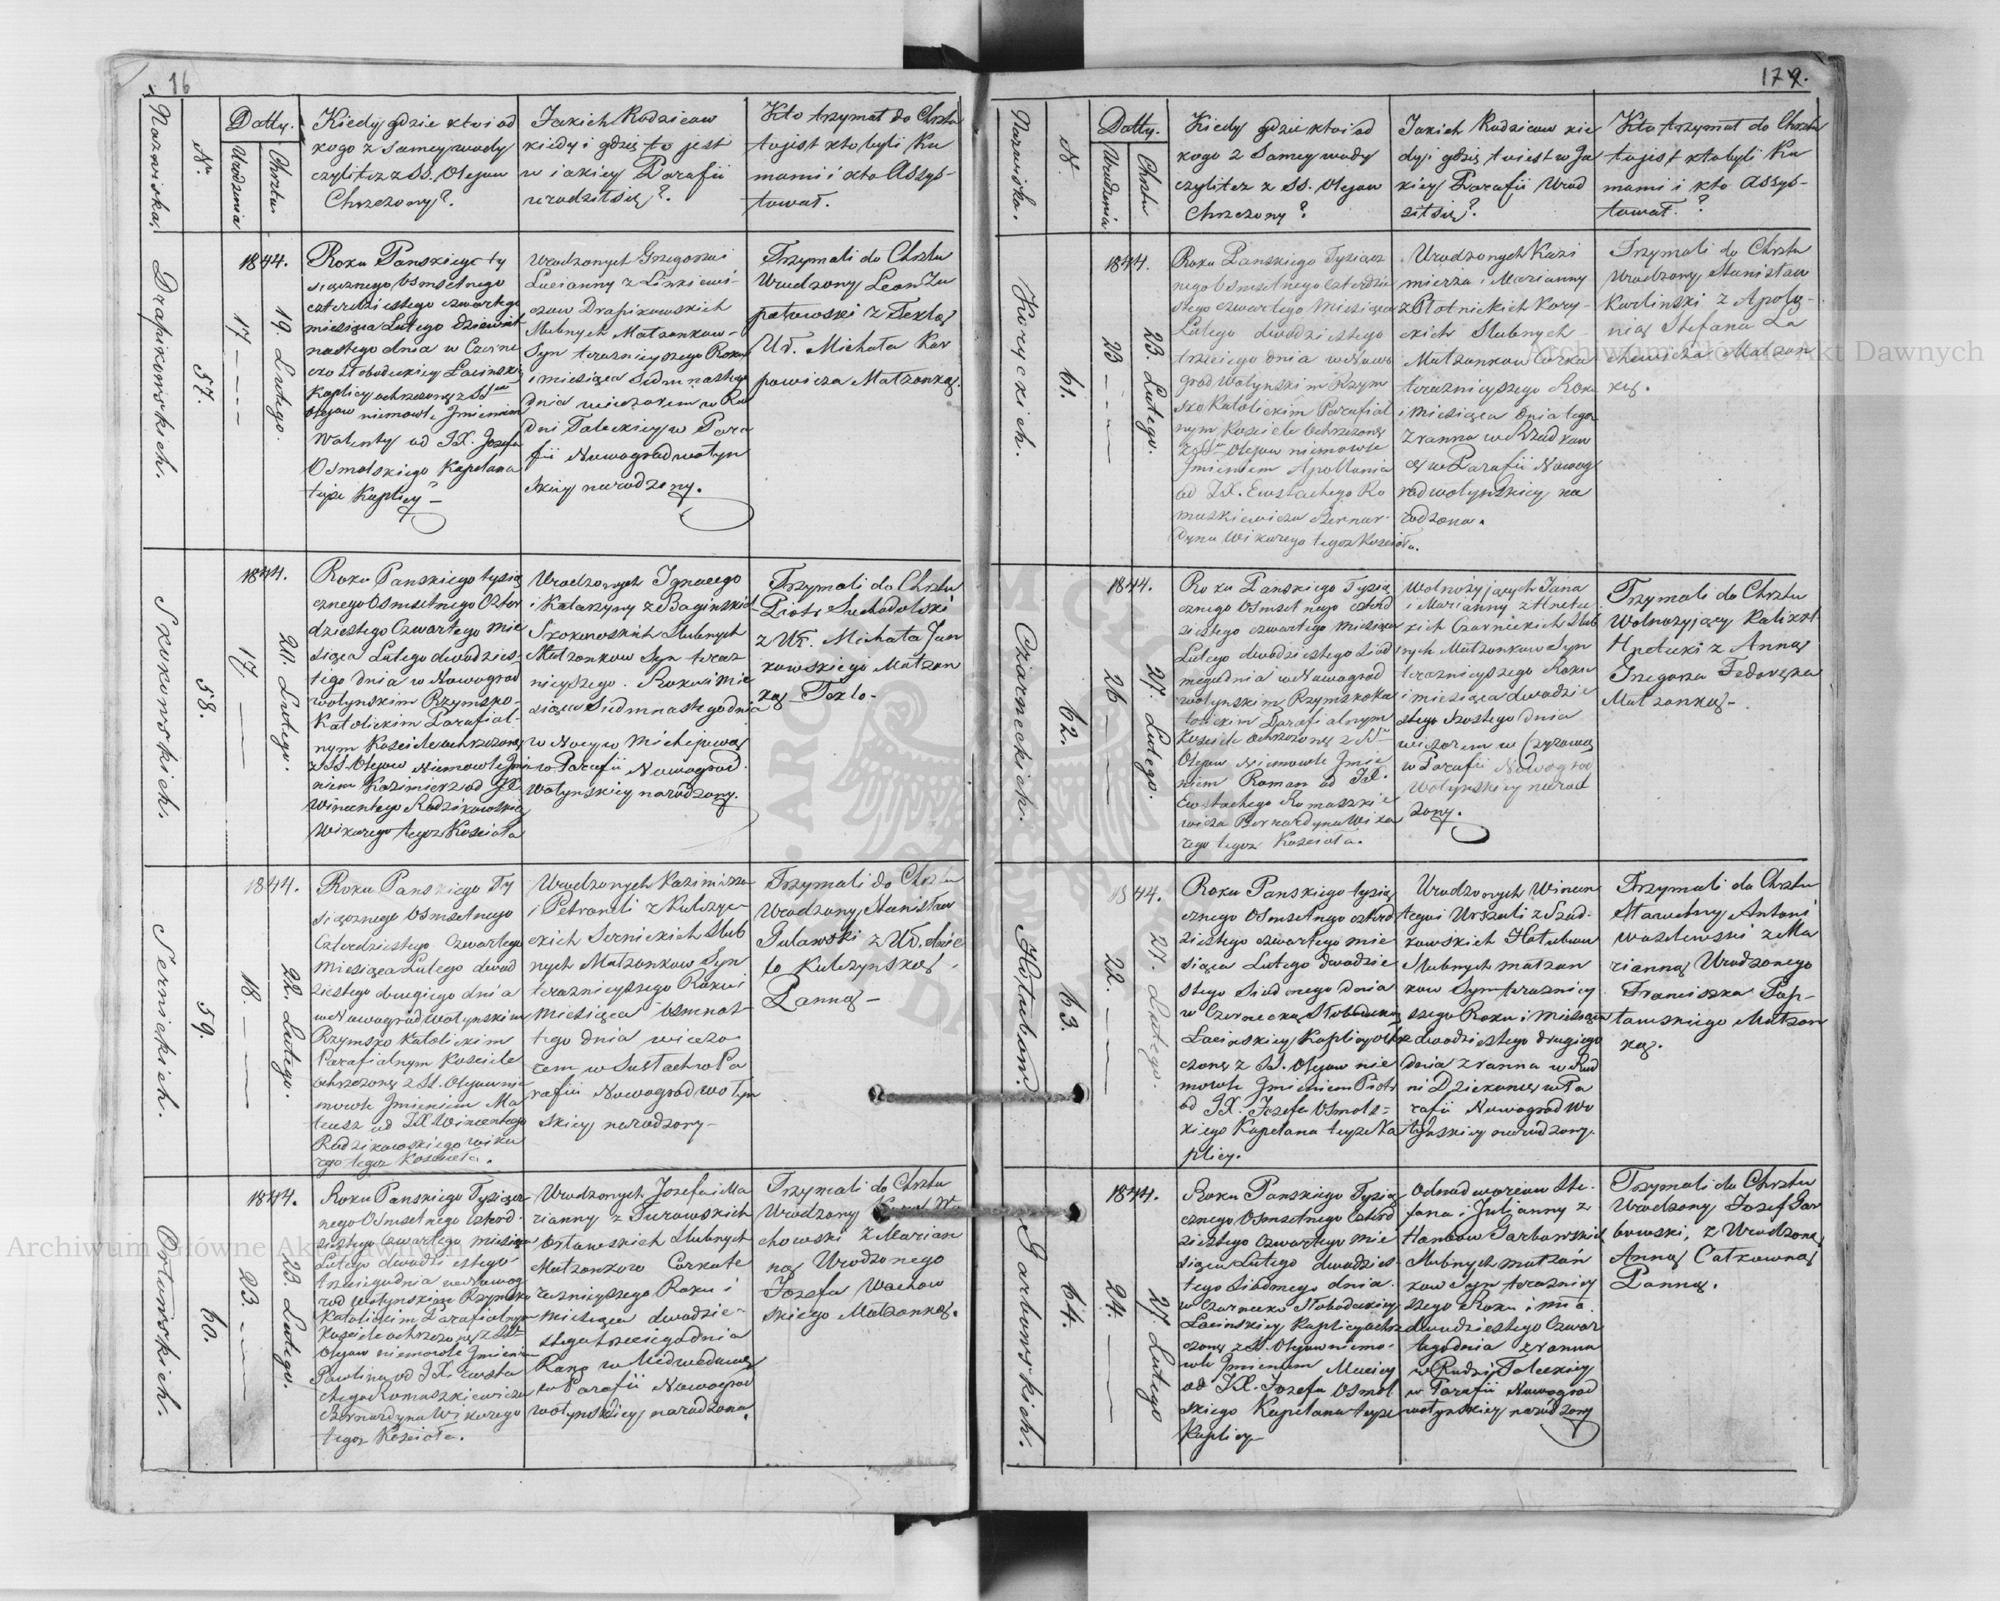 16
Nazwiska.
Nr.
Datty.
Urodzenia
Chrztu.
Kiedy gdzie kto i od
kogo z samey wody
czyli też z SS. Olejow
Chrzczony?
Jakich Rodzicow
kiedy i gdzie to jest
w iakiey Parafii
urodził się?
Kto trzymał do Chrztu
to jest kto byli Ku
mami i kto Assys-
tował.
Drapikowskich.
57.
1844.
17
19. Lutego.
Roku Panskiego ty
siącznego Osmsetnego
czterdziestego czwartego
miesiąca Lutego dziewięt
nastego dnia w Czerne
cko Słobodeckiey Łacinskiey
Kaplicy ochrzczony z SS
Olejow niemowle Jmieniem
Walenty od JX. Jozefa
Osmolskiego Kapelana
teyże Kaplicy
Urodzonych Grzegorza i
Lucianny z
Drapikowskich
Slubnych Małzonkow
Syn terazniejszego Roku
i miesiąca Siedmnastego
dnia wieczorem w Ru
dni Taleckiey w Para
fii Nowogradwołyn
skiey narodzony.
Trzymali do Chrztu
Urodzony Leon Za
pałowski z Teklą
Ur. Michała Kar
powicza Małzonką.
Skokowskich.
58.
1844.
17
20. Lutego.
Roku Panskiego tysią
cznego Osmsetnego Czter
dziestego Czwartego mie
siąca Lutego dwudzies-
tego dnia w Nowograd
wołynskim Rzymsko-
Katolickim Parafial-
nym Kosciele ochrzczony
z SS. Olejow Niemowle Jmie
niem Kazimierz od JX.
Wincentego Radzikowskiego
Wikarego tegoż Kościoła
Urodzonych Ignacego
i Katarzyny z Baginskich
Skokowskich Slubnych
Małzonkow Syn teraz
nieyszego Roku i mie
siąca Siedmnastego dnia
w Nocy w Michejewą
w Parafii Nowograd
Wołynskiey narodzony.
Trzymali do Chrztu
Piotr Suchodolski
z Ur. Michała Jan
kowskiego Małzon
ką Teklą
Sernickich.
59.
1844.
18.
22. Lutego.
Roku Panskiego Ty
siącznego Osmsetnego
Czterdziestego Czwartego
Miesiąca Lutego dwud
ziestego drugiego dnia
w Nowogradwołynskim
Rzymsko Katolickim
Parafialnym Kosciele
ochrzczony z SS. Olejow nie
mowle Jmieniem Ma
teusz od JX Wincentego
Radzikowskiego wika
rego tegoż Kościoła.
Urodzonych Kazimierza
i Petroneli z Kulczyc-
kich Sernickich Slub
nych Małzonkow Syn
terazniejszego Roku i
Miesiąca Osmnas-
tego dnia wieczo
rem w Pa
rafii Nowogradwołyn
skiey narodzony
Trzymali do Chrztu
Urodzony Stanisław
Puławski z Ur.
Kulczynską
Panną
Orłowskich.
60.
1844.
23.
23. Lutego.
Roku Panskiego Tysiącz
nego Osmsetnego czterd
ziestego Czwartego miesiąca
Lutego dwudziestego
trzeciego dnia w Nowog
rod Wołynskim Rzymsko
Katolickim Parafialnym
Kosciele ochrzczony z SS
Olejow niemowle Jmieniem
Pawlina od JX. Eusta
chego Romaszkiewicza
Bernardyna Wikarego
tegoż Kościoła.
Urodzonych Jozefa i Ma
rianny z Turowskich
Orłowskich Slubnych
Małzonkow Corka te
raznieyszego Roku i
miesiąca dwudzie-
stego trzeciego dnia
Rano w Medwedowey
w Parafii Nowograd
wołynskiey narodzona.
Trzymali do Chrztu
Urodzony Karol
chowski z Marian
ną Urodzonego
Jozefa Wachow
skiego Małzonką.
17
Nazwiska.
N.
Datty.
Urodzenia
Chrztu
Kiedy gdzie kto i od
kogo z samey wody
czyli też z SS. Olejow
Chrzczony?
Jakich Rodzicow kie
dy i gdzie to iest w Ja
kiey Parafii Urod
ził się?
Kto trzymał do Chrztu
to jest kto byli Ku
mami i kto Assys-
tował?
Koryckich.
61.
1844.
23
23. Lutego.
Roku Panskiego Tysiącz
nego Osmsetnego czterdzie
stego czwartego Miesiąca
Lutego dwudziestego
trzeciego dnia w Nowo
grad Wołynskim Rzym
sko Katolickim Parafial
nym Kosciele ochrzczony
z SS Olejow niemowle
Jmieniem Apollonia
od JX. Eustachego Ro
maszkiewicza Bernar-
dyna Wikarego tegoż Kościoła.
Urodzonych Kazi
mierza i Marianny
z Płotnickich Kory-
ckich Slubnych
Małzonkow Corka
terazniejszego Roku
i Miesiąca dnia tego
zranna w Rudkow
w Parafii Nowog
radwołynskiey na
rodzona.
Trzymali do Chrztu
Urodzony Stanisław
Karlinski z Apolo-
nią Stefana La
chowicza Małzon
ką.
Czarneckich.
62.
1844.
26
27. Lutego.
Roku Panskiego Tysią
cznego Osmsetnego czterd
ziestego czwartego Miesiąca
Lutego dwudziestego Siod
mego dnia w Nowograd
wołynskim Rzymskoka
tolickim Parafialnym
Kosciele ochrzczony z SS
Olejow Niemowle Jmie
niem Roman od JX.
Eustachego Romaszkie
wicza Bernardyna Wika
rego tegoż Kościoła.
Wolnożyjących Jana
i Marianny z Hnetec
kich Czarneckich Slub
nych Małzonkow Syn
terazniejszego Roku
i miesiąca dwudzie
stego Szostego dnia
wieczorem w Czyżową
w Parafii Nowograd
Wołynskiey narod
zony.
Trzymali do Chrztu
Wolnożyjący Kalixt
Hnetecki z Anną
Grzegorza Fedorczuka
Małzonką
Hołubow.
63.
1844.
22.
27. Lutego.
Roku Panskiego tysią
cznego Osmsetnego czterd
ziestego czwartego mie
siąca Lutego dwudzie
stego Siodmego dnia
w Czernecko Słobodeckiey
Łacinskiey Kaplicy ochrz
czony z SS. Olejow nie
mowle Jmieniem Piotr
od JX. Jozefa Osmols-
kiego Kapelana teyże Ka
plicy.
Urodzonych Wincen
tego i Urszuli z Szad-
kowskich Hołubow
Slubnych małzon
kow Syn terazniey
szego Roku i Miesiąca
dwudziestego drugiego
dnia zranna w Rud
ni Dziekanię w Pa
rafii Nowogradwo
łynskiey narodzony.
Trzymali do Chrztu
Starobny Antoni
Waszlewski z Ma
rianną Urodzonego
Franciszka Pap-
ławskiego Małzon
ką.
Garbowskich.
64.
1844.
24.
27. Lutego
Roku Panskiego Tysią
cznego Osmsetnego Czterd
ziestego Czwartego Mie
siąca Lutego dwudzies
tego Siodmego dnia
w Czarnecko Słobodeckiey
Łacinskiey Kaplicy ochrz
czony z SS. Olejow niemo-
wle Jmieniem Maciey
od JX. Jozefa Osmol
skiego Kapelana teyże
Kaplicy
Odnodworcow Ste-
fana i Julianny z
Garbowskich
Slubnych małzon
kow Syn terazniey
szego Roku i m-ca
dwudziestego Czwar
tego dnia zranna
w Rudni Taleckiey
w Parafii Nowograd
wołynskiey narodzony
Trzymali do Chrztu
Urodzony Jozef Gar
bowski, z Urodzoną
Anną Catkowną
Panną.
Archiwum Główne Akt Dawnych
Archiwum Główne Akt Dawnych